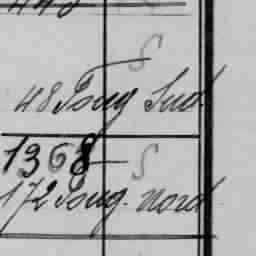 S
48 Poug Sud
1368 S
172 Poug. Nord